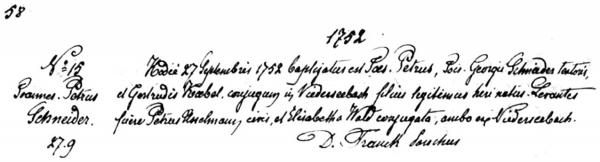 58
1752
No 15
Joannes Petrus
Schneider.
27.9
Hodie 27 Septembris 1752 baptizatus est Joes. Petrus, Jois Georgii Schneider textoris,
et Gertrudis Knebel conjugum in Niederseelbach filius legitimus heri natus. Levantes
fuere Petrus Uselmann, civis, et Elisabetha Wald conjugata, ambo ex Niederseelbach.
D. Franck Parochus